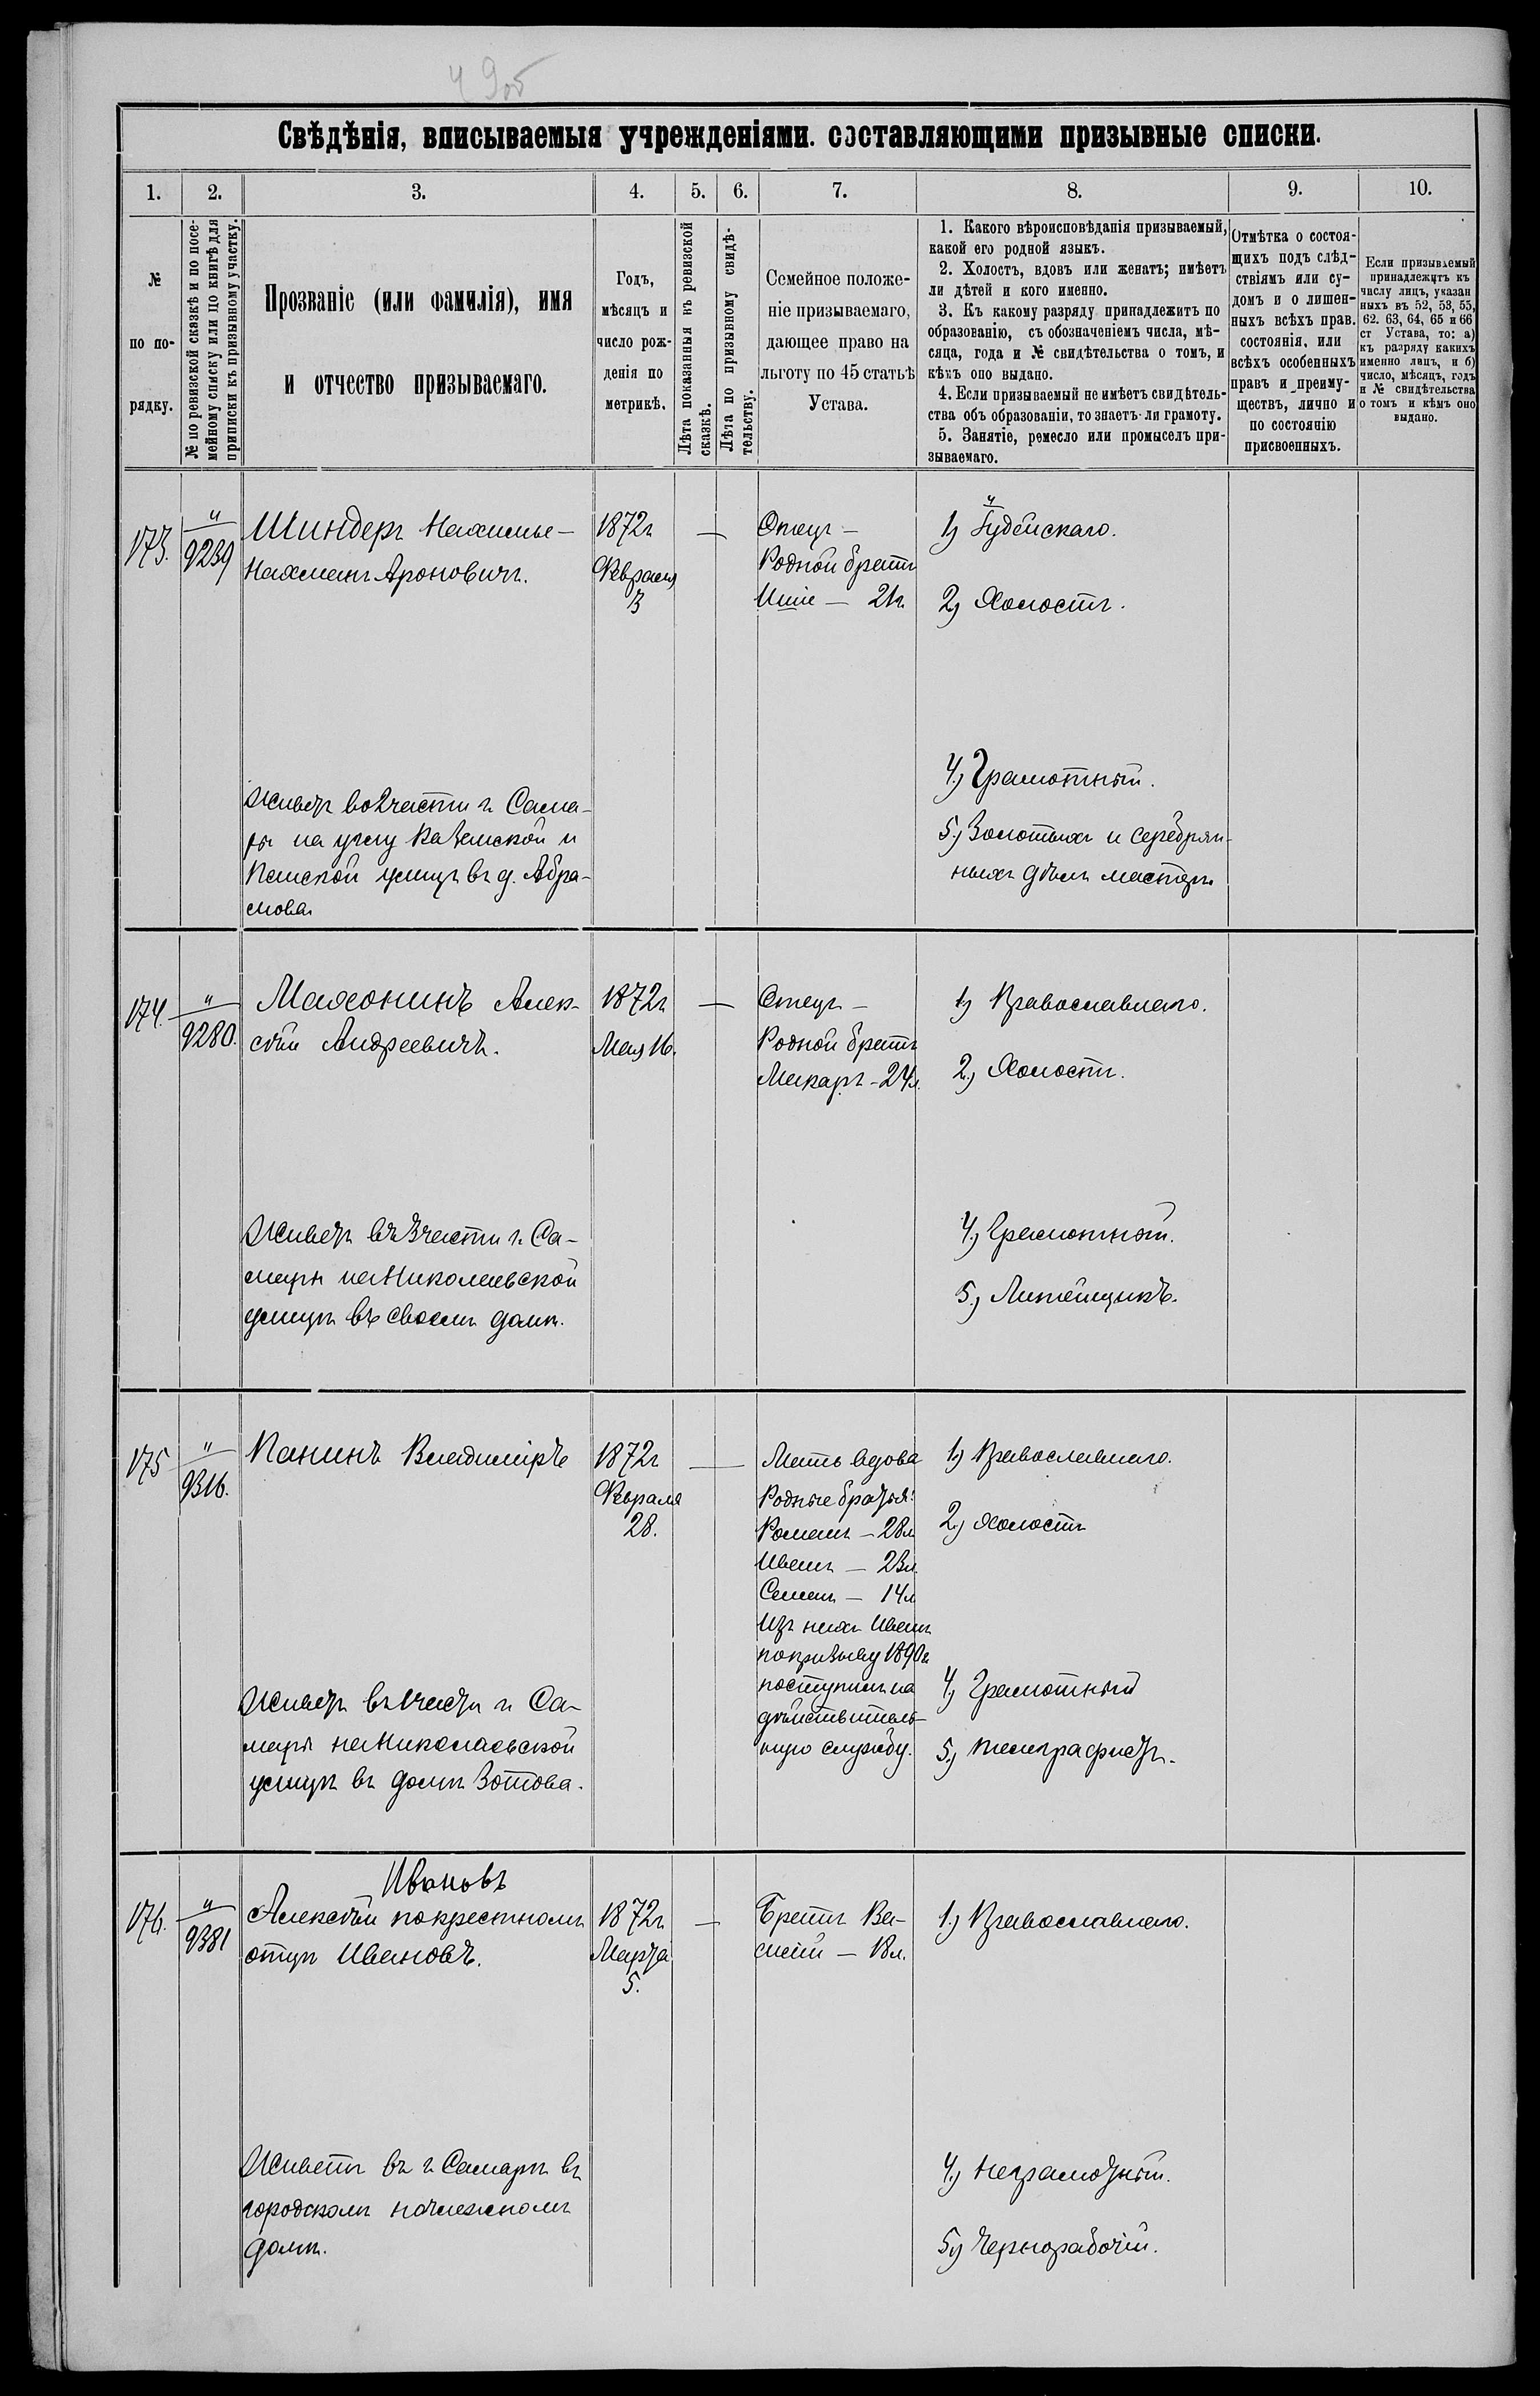 49об
Свѣдѣнія, вписываемыя учрежденіями. составляющими призывные списки.
1.
2.
3.
4.
5.
6.
7.
8.
9.
10.
№
по по-
рядку.
№ по ревизской сказкѣ и по посе-
мейному списку или по книгѣ для
приписки къ призывному участку.
Прозваніе (или фамилія), имя
и отчество призываемаго.
Годъ,
мѣсяцъ и
число рож-
денія по
метрикѣ.
Лѣта показанныя къ ревизской
сказкѣ.
Лѣта по призывному свидѣ-
тельству.
Семейное положе-
ніе призываемаго,
дающее право на
льготу по 45 статьѣ
Устава.
1. Какого вѣроисповѣданія призываемый,
какой его родной языкъ.
2. Холостъ, вдовъ или женатъ; имѣетъ
ли дѣтей и кого именно.
3. Къ какому разряду принадлежитъ по
образованію, съ обозначеніемъ числа, мѣ-
сяца, года и № свидѣтельства о томъ, и
кѣмъ оно выдано.
4. Если призываемый не имѣетъ свидѣтель-
ства объ образованіи, то знаетъ-ли грамоту.
5. Занятіе, ремесло или промыселъ при-
зываемаго.
Отмѣтка о состоя-
щихъ подъ слѣд-
ствіямъ или су-
домъ и о лишен-
ныхъ всѣхъ прав.
состоянія, или
всѣхъ особенныхъ
правъ и преиму-
ществъ, лично и
по состоянію
присвоенныхъ.
Если призываемый
принадлежитъ къ
числу лицъ, указан
ныхъ въ 52, 53, 55,
62. 63, 64, 65 и 66
ст Устава, то: а)
къ разряду какихъ
именно лицъ, и б)
число, мѣсяцъ, годъ
и № свидѣтельства
о томъ и кѣмъ оно
выдано.
173.
"
9239
Шиндеръ Нахимье-
Нахманъ Ароновичъ.
1872г
Февраля
3
—
Отецъ —
Родной братъ
— 21г.
1) Іудейскаго.
2) Холостъ.
4.) Грамотный.
5.) Золотыхъ и серебрян-
ныхъ дѣлъ мастеръ
Живетъ во 2 части г. Сама-
ры на углу Каземской и
улицъ въ д. Абра-
мова
174.
"
9280.
Махонинъ Алек-
сѣй Андреевичъ.
1872г
Мая 16.
—
Отецъ —
Родной братъ
Макаръ - 24л.
1) Православнаго.
2.) Холостъ.
4.) Грамотный.
5.) Литейщикъ.
Живетъ въ 3 части г. Са-
мары на Николаевской
улицѣ въ своемъ домѣ.
175
"
9316.
Панинъ Владиміръ
1872г
Февраля
28.
—
Мать вдова
Родные братья:
Романъ — 28л
Иванъ — 23л.
Семенъ — 14л
Изъ нихъ Иванъ
по призыву 1890г
поступилъ на
дѣйствитель-
ную службу.
1) Православнаго.
2.) Холостъ
4.) Грамотный
5.) Телеграфистъ.
Живетъ въ 1 части г. Са-
мары на Николаевской
улицѣ въ домѣ Зотова.
176.
"
9381
Ивановъ
Алексѣй по крестномъ
отцѣ Ивановъ.
1872г
Марта
5.
—
Братъ Ва-
силій — 18л.
1.) Православнаго.
4.) Неграмотный.
5.) Чернорабочій.
Живетъ въ г. Самарѣ въ
городскомъ ночлежномъ
домѣ.